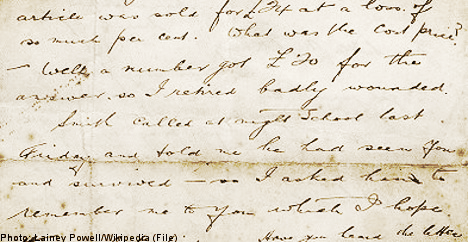 article was sold for £24 at a loss of
so much per cent. What was the cost price?
— Well a number got £70 for the
answer, so I retired badly wounded.
Smith called at night School last
Friday and told me he had seen you
and survived — so I asked him to
remember me to you which I hope
Have you heard the letter
Photo: Lainey Powell/Wikipedia (File)